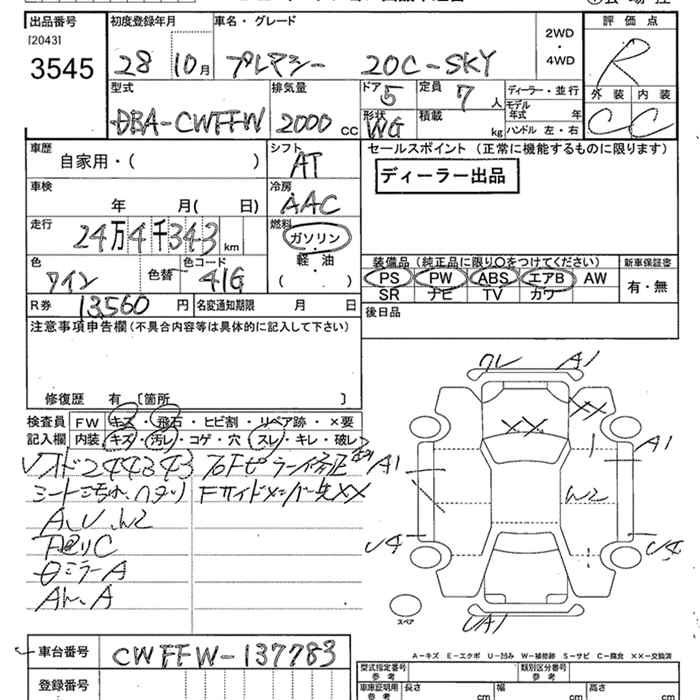 出品番号 初度登録年月 車名・グレード 評価点
[2043]
3545 28 10月 プレマシー 20C-SKY 2WD・4WD R
型式 排気量 ドア 5 定員 7人 ディーラー・並行 外装 内装
DBA-CWFFW 2000 cc 形状 WG 積載 kg モデル年式 年 ハンドル 左・右 C C
車歴 シフト セールスポイント (正常に機能するものに限ります)
自家用・( ) AT ディーラー出品
車検 冷房
年 月( 日) AAC
走行 燃料
24万4千343 km ガソリン・軽油
色 色替 色コード ( ) 装備品 (純正品に限り○をつけてください) 新車保証書
ワイン 41G PS PW ABS エアB AW 有・無
SR ナビ TV カワ
R券 13,560 円 名変通知期限 月 日 後日品
注意事項申告欄 (不具合内容等は具体的に記入して下さい)
修復歴 有 [箇所 ]
検査員 FW キズ・飛石・ヒビ割・リペア跡・×要
記入欄 内装、キズ・汚レ・コゲ・穴・スレ・キレ・破レ
A、U、W2
ミラーA
クレ A1
XX XX
A1 A1
W2
U4 U4
UA1
スペア
A-キズ E-エクボ U-凹み W-補修跡 S-サビ C-腐食 XX-交換済
車台番号 CWFFW-137783
登録番号
型式指定番号 参考 類別区分番号 参考
車庫証明用 参考 長さ cm 幅 cm 高さ cm